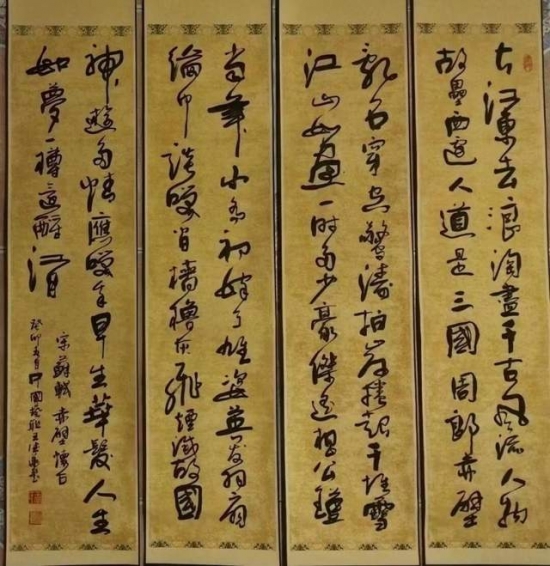 大江東去浪淘盡千古風流人物
故壘西邊人道是三國周郎赤壁
亂石穿空驚濤拍岸捲起千堆雪
江山如畫一時多少豪傑遙想公瑾
當年小喬初嫁了雄姿英發羽扇
綸巾談笑間檣櫓灰飛煙滅故國
神遊多情應笑我早生華髮人生
如夢一樽還酹江月
宋蘇軾赤壁懷古
癸卯春月中國